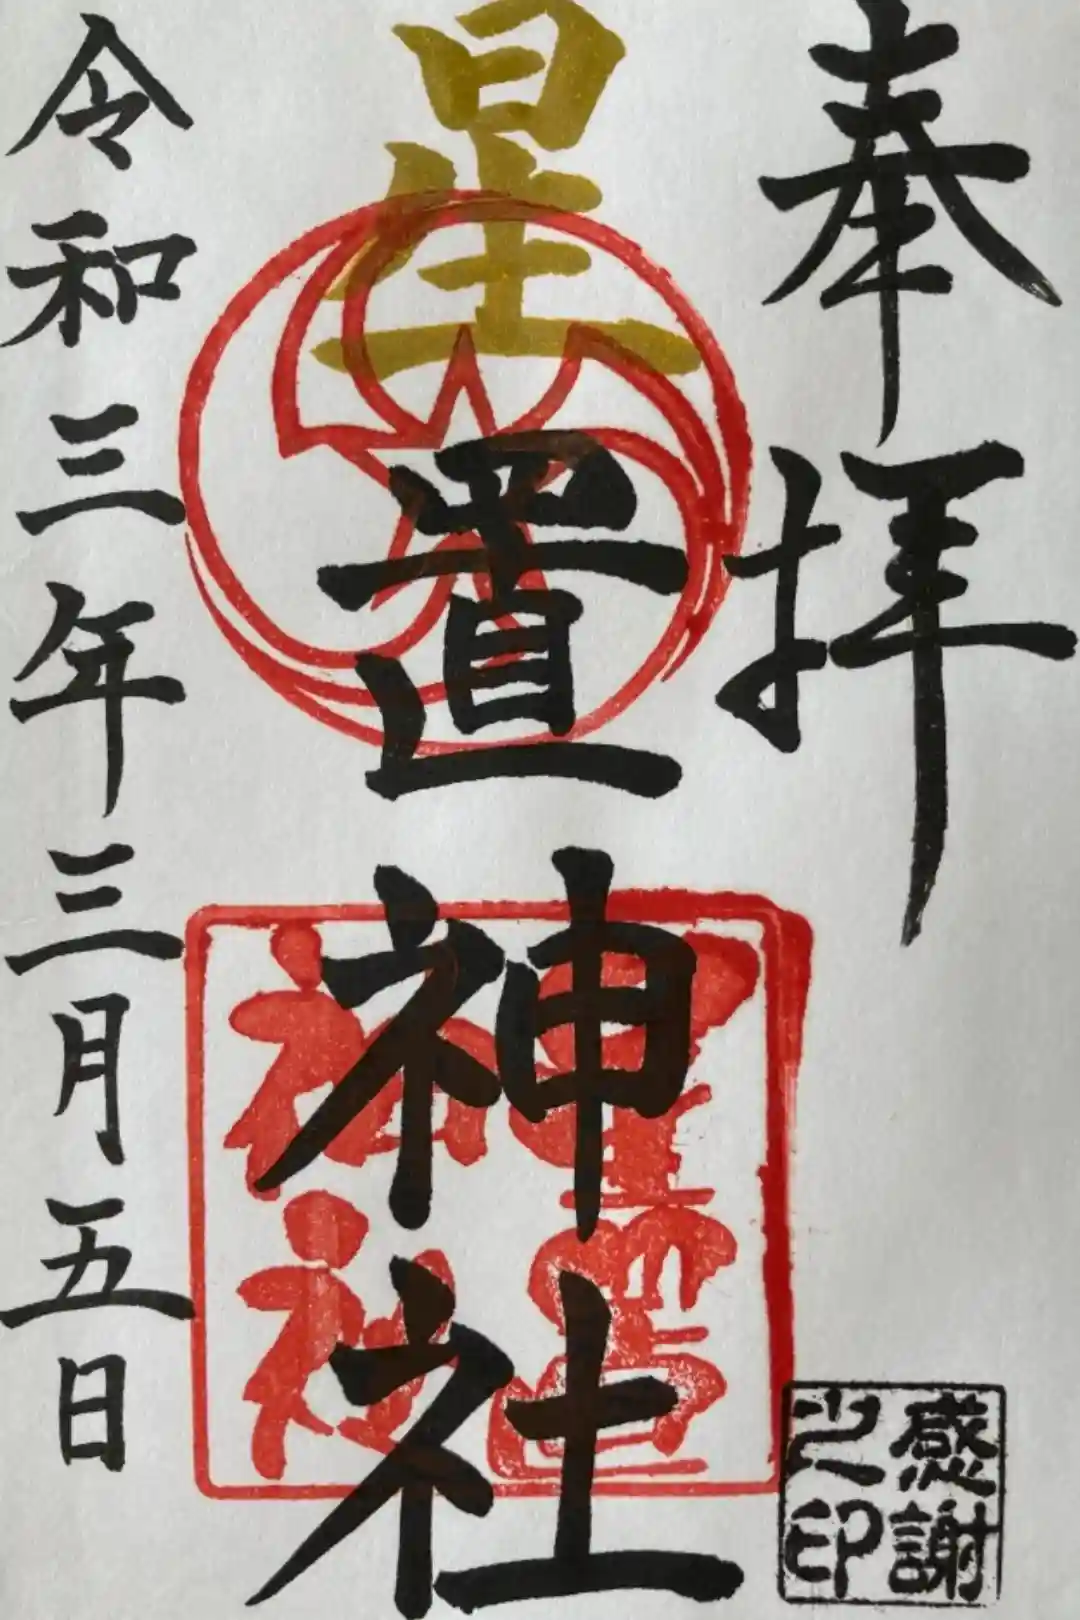 奉拝
星置神社
星置神社
令和三年三月五日
感謝之印